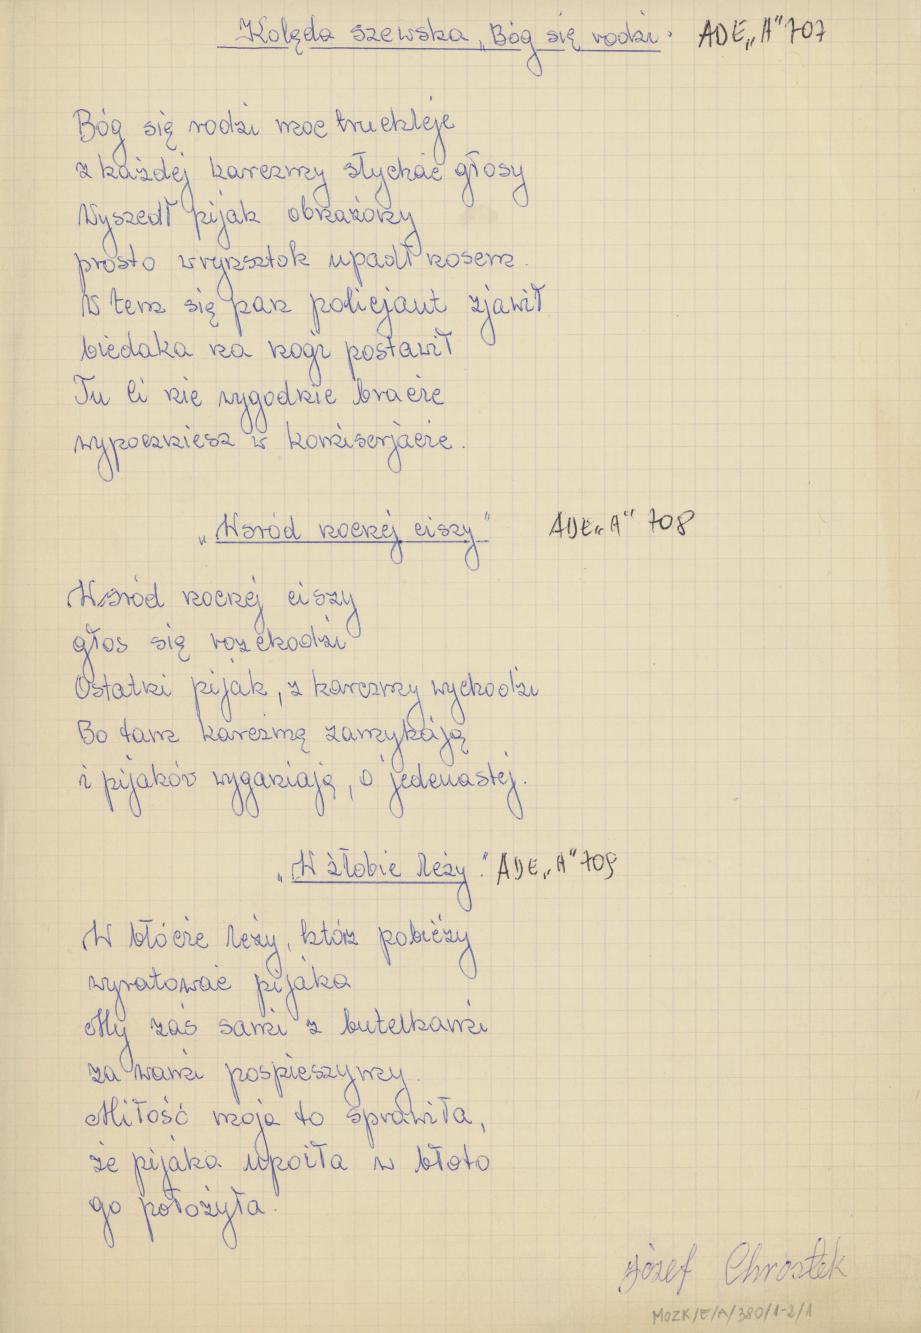 Kolęda szewska „Bóg się rodzi" ADE„A" 707
Bóg się rodzi moc truchleje
z każdej karczmy słychać głosy
Wyszedł pijak obrażony
prosto w rynsztok upadł nosem.
W tem się pan policjant zjawił
biedaka na nogi postawił
Tu Ci nie wygodnie bracie
wypoczniesz w komiserjacie.
„Wsród nocnej ciszy" ADE„A" 708
Wsród nocnej ciszy
głos się rozchodzi
Ostatni pijak, z karczmy wychodzi
Bo tam karczmę zamykają
i pijaków wyganiają, o jedenastej.
„W żłobie leży". ADE„A" 709
W błócie leży, któż pobieży
wyratować pijaka
My zaś sami z butelkami
za wami pospieszymy.
Miłość moja to sprawiła,
że pijaka upoiła w błoto
go położyła.
Józef Chrostek
MOZK/E/A/380/1-2/1